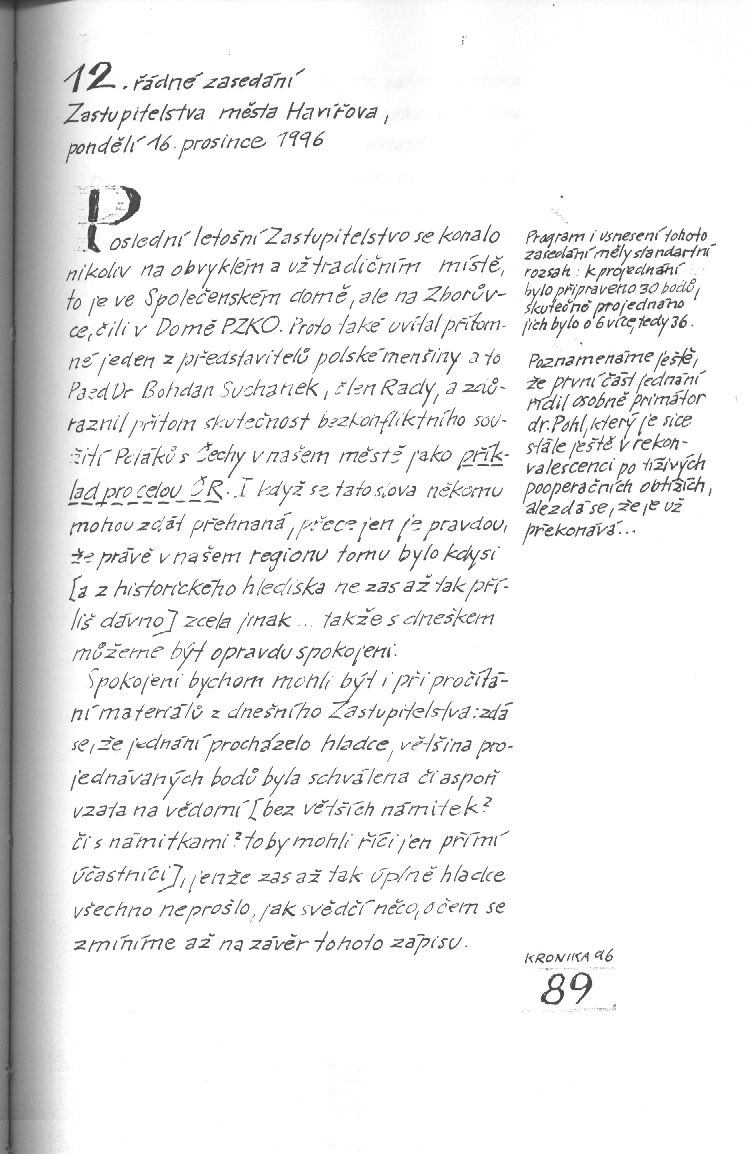 12. řádné zasedání
Zastupitelstva města Havířova,
pondělí 16. prosince 1996
Poslední letošní Zastupitelstvo se konalo
nikoliv na obvyklém a už tradičním místě,
to je ve Společenském domě, ale na Zborův-
ce, čili v Domě PZKO. Proto také uvítal přítom-
né jeden z představitelů polské menšiny a to
PaedDr Bohdan Suchanek, člen Rady, a zdů-
raznil přitom skutečnost bezkonfliktního sou-
žití Poláků s Čechy v našem městě jako přík-
lad pro celou ČR. I když se tato slova někomu
mohou zdát přehnaná, přece jen je pravdou,
že právě v našem regionu tomu bylo kdysi
[a z historického hlediska ne zas až tak pří-
liš dávno] zcela jinak ... takže s dneškem
můžeme být opravdu spokojeni.
Spokojeni bychom mohli být i při pročítá-
ní materiálů z dnešního Zastupitelstva: zdá
se, že jednání procházelo hladce, většina pro-
jednávaných bodů byla schválena či aspoň
vzata na vědomí [bez větších námitek?
či s námitkami? to by mohli říci jen přímí
účastníci], jenže zas až tak úplně hladce
všechno neprošlo, jak svědčí něco, o čem se
zmíníme až na závěr tohoto zápisu.
Program i usnesení tohoto
zasedání měly standartní
rozsah: k projednání
bylo připraveno 30 bodů,
skutečně projednáno
jich bylo o 6 více, tedy 36.
Poznamenáme ještě,
že první část jednání
řídil osobně primátor
dr. Pohl, který je sice
stále ještě v rekon-
valescenci po tíživých
pooperačních obtížích,
ale zdá se, že je už
překonává...
KRONIKA 96
89